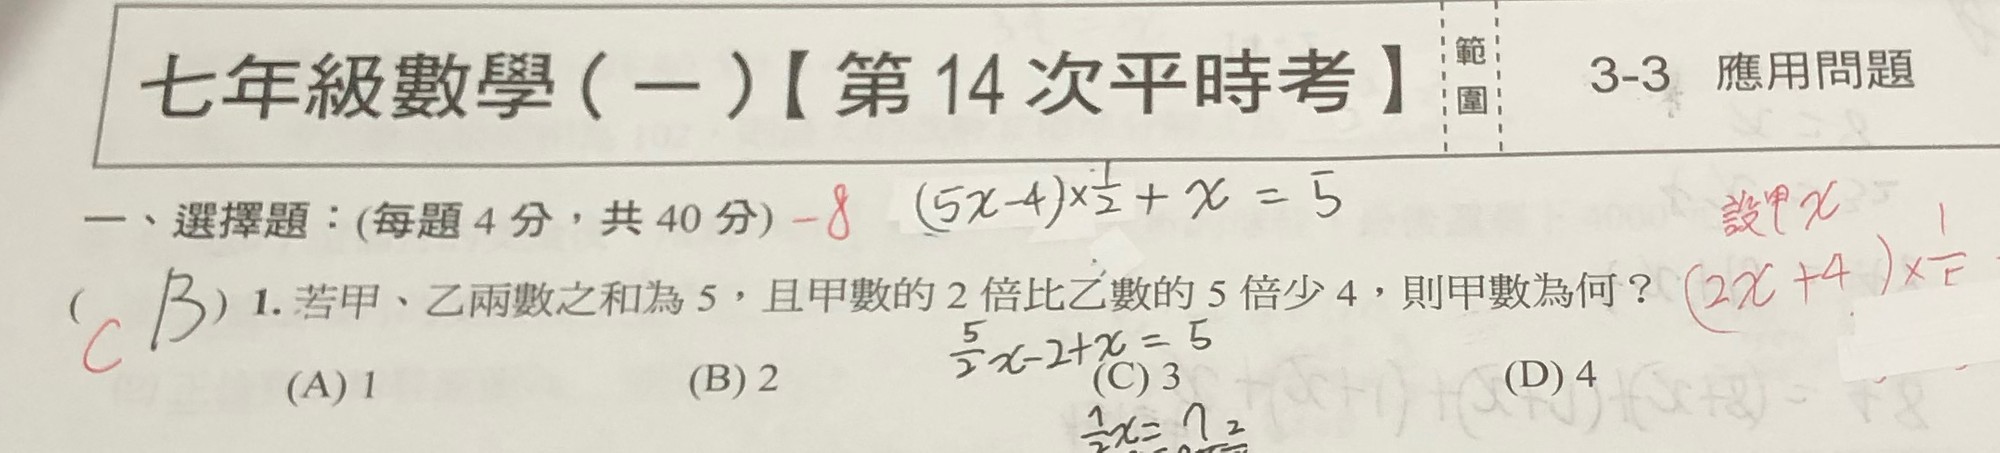 七年級數學(一)【第14次平時考】 範圍 3-3 應用問題
一、選擇題：(每題 4 分，共 40 分) -8 (5x-4)×1/2 + x = 5 設甲x
( B ) 1. 若甲、乙兩數之和為 5，且甲數的 2 倍比乙數的 5 倍少 4，則甲數為何？ (2x+4)×1/
C
5/2x-2+x = 5
(A) 1 (B) 2 (C) 3 (D) 4
7/2x= 7